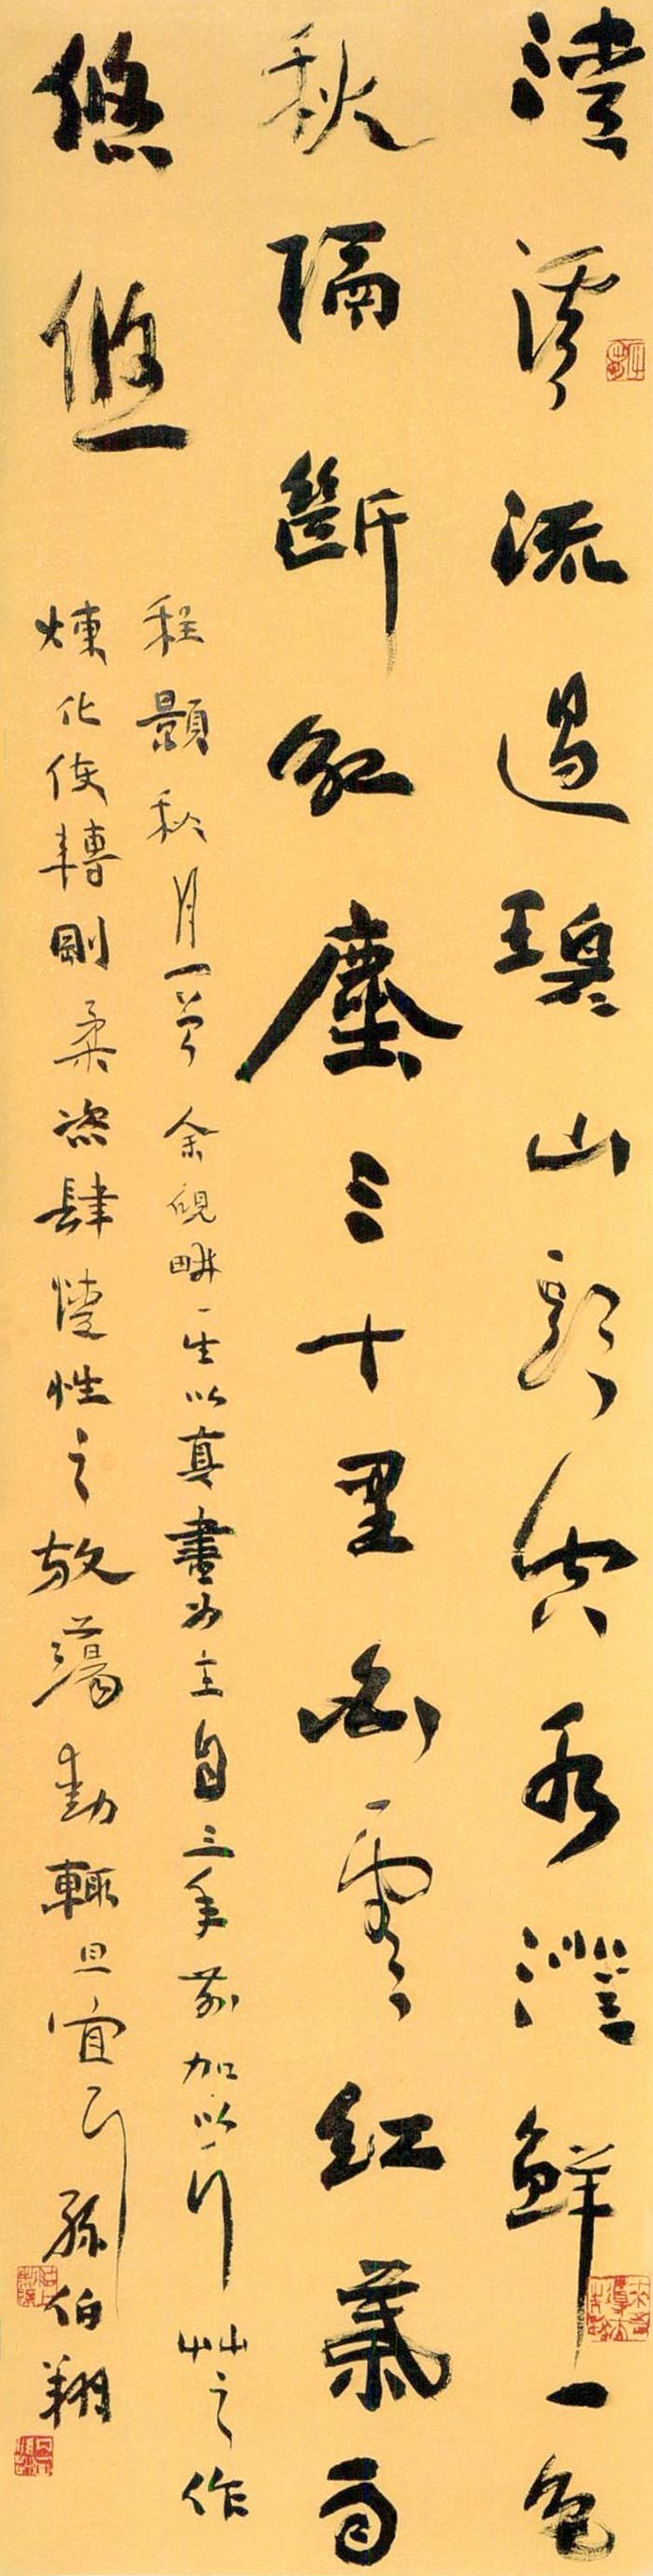 清溪流過碧山頭空水澄鮮一色
秋隔斷紅塵三十里白雲紅葉兩
悠悠
程顥秋月一首余硯畊一生以真書為主自三年前加以行艸之作
煉化使轉剛柔恣肆性之放蕩動輒且宜孫伯翔